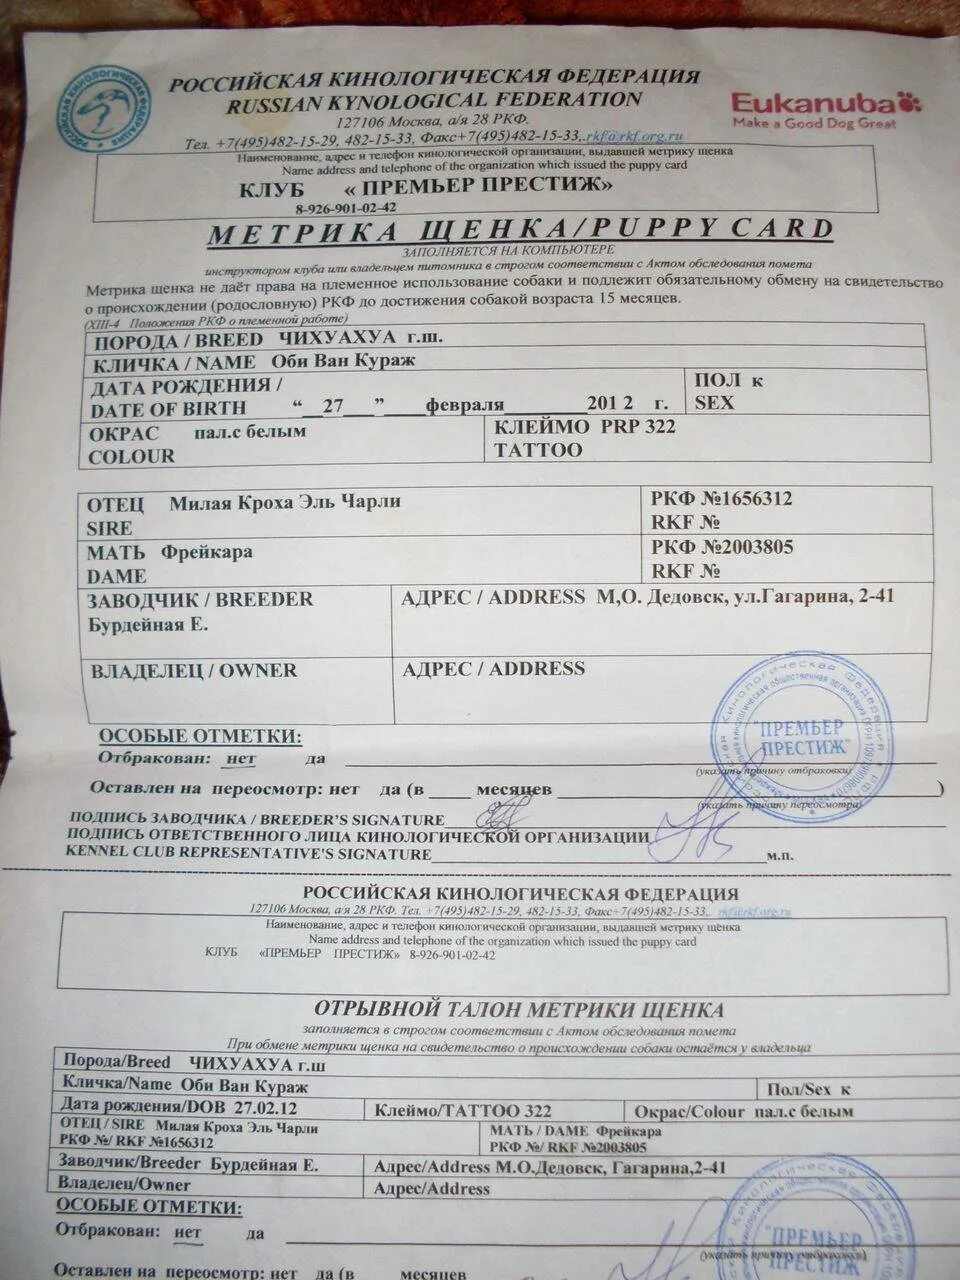 РОССИЙСКАЯ КИНОЛОГИЧЕСКАЯ ФЕДЕРАЦИЯ
RUSSIAN KYNOLOGICAL FEDERATION
127106 Москва, а/я 28 РКФ.
Тел. +7(495)482-15-29, 482-15-33, Факс+7(495)482-15-33,.rkf@rkf.org.ru
Eukanuba
Make a Good Dog Great
Наименование, адрес и телефон кинологической организации, выдавшей метрику щенка
Name address and telephone of the organization which issued the puppy card
КЛУБ « ПРЕМЬЕР ПРЕСТИЖ»
8-926-901-02-42
МЕТРИКА ЩЕНКА/PUPPY CARD
ЗАПОЛНЯЕТСЯ НА КОМПЬЮТЕРЕ
инструктором клуба или владельцем питомника в строгом соответствии с Актом обследования помета
Метрика щенка не даёт права на племенное использование собаки и подлежит обязательному обмену на свидетельство
о происхождении (родословную) РКФ до достижения собакой возраста 15 месяцев.
(XIII-4 Положения РКФ о племенной работе)
ПОРОДА / BREED ЧИХУАХУА г.ш.
КЛИЧКА / NAME Оби Ван Кураж
ДАТА РОЖДЕНИЯ /
DATE OF BIRTH “__27___”____февраля________2012 г.
ПОЛ к
SEX
ОКРАС пал.с белым
COLOUR
КЛЕЙМО PRP 322
TATTOO
ОТЕЦ Милая Кроха Эль Чарли
SIRE
РКФ №1656312
RKF №
МАТЬ Фрейкара
DAME
РКФ №2003805
RKF №
ЗАВОДЧИК / BREEDER
Бурдейная Е.
АДРЕС / ADDRESS М,О. Дедовск, ул.Гагарина, 2-41
ВЛАДЕЛЕЦ / OWNER
АДРЕС / ADDRESS
"ПРЕМЬЕР
ПРЕСТИЖ"
ОСОБЫЕ ОТМЕТКИ:
Отбракован: нет да
(указать причину отбраковки)
Оставлен на переосмотр: нет да (в ____ месяцев )
(указать причину переосмотра)
ПОДПИСЬ ЗАВОДЧИКА / BREEDER'S SIGNATURE
ПОДПИСЬ ОТВЕТСТВЕННОГО ЛИЦА КИНОЛОГИЧЕСКОЙ ОРГАНИЗАЦИИ
KENNEL CLUB REPRESENTATIVE'S SIGNATURE м.п.
РОССИЙСКАЯ КИНОЛОГИЧЕСКАЯ ФЕДЕРАЦИЯ
127106 Москва, а/я 28 РКФ. Тел. +7(495)482-15-29, 482-15-33, Факс+7(495)482-15-33,. rkf@rkf.org.ru
Наименование, адрес и телефон кинологической организации, выдавшей метрику щенка
Name address and telephone of the organization which issued the puppy card
КЛУБ «ПРЕМЬЕР ПРЕСТИЖ» 8-926-901-02-42
ОТРЫВНОЙ ТАЛОН МЕТРИКИ ЩЕНКА
заполняется в строгом соответствии с Актом обследования помета
При обмене метрики щенка на свидетельство о происхождении собаки остаётся у владельца
Порода/Breed ЧИХУАХУА г.ш
Кличка/Name Оби Ван Кураж
Пол/Sex к
Дата рождения/DOB 27.02.12
Клеймо/TATTOO 322
Окрас/Colour пал.с белым
ОТЕЦ / SIRE Милая Кроха Эль Чарли
РКФ №/ RKF №1656312
МАТЬ / DAME Фрейкара
РКФ №/ RKF №2003805
Заводчик/Breeder Бурдейная Е.
Адрес/Address М.О.Дедовск, Гагарина,2-41
Владелец/Owner
Адрес/Address
ОСОБЫЕ ОТМЕТКИ:
Отбракован: нет да
(указать причину отбраковки)
"ПРЕМЬЕР
ПРЕСТИЖ"
Оставлен на переосмотр: нет да (в месяцев